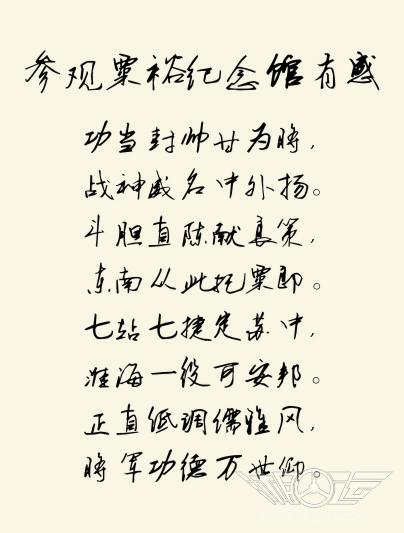 参观粟裕纪念馆有感
功当封帅甘为将,
战神威名中外扬。
斗胆直陈献良策,
东南从此托粟郎。
七站七捷定苏中,
淮海一役可安邦。
正直低调儒雅风,
将军功德万世仰。